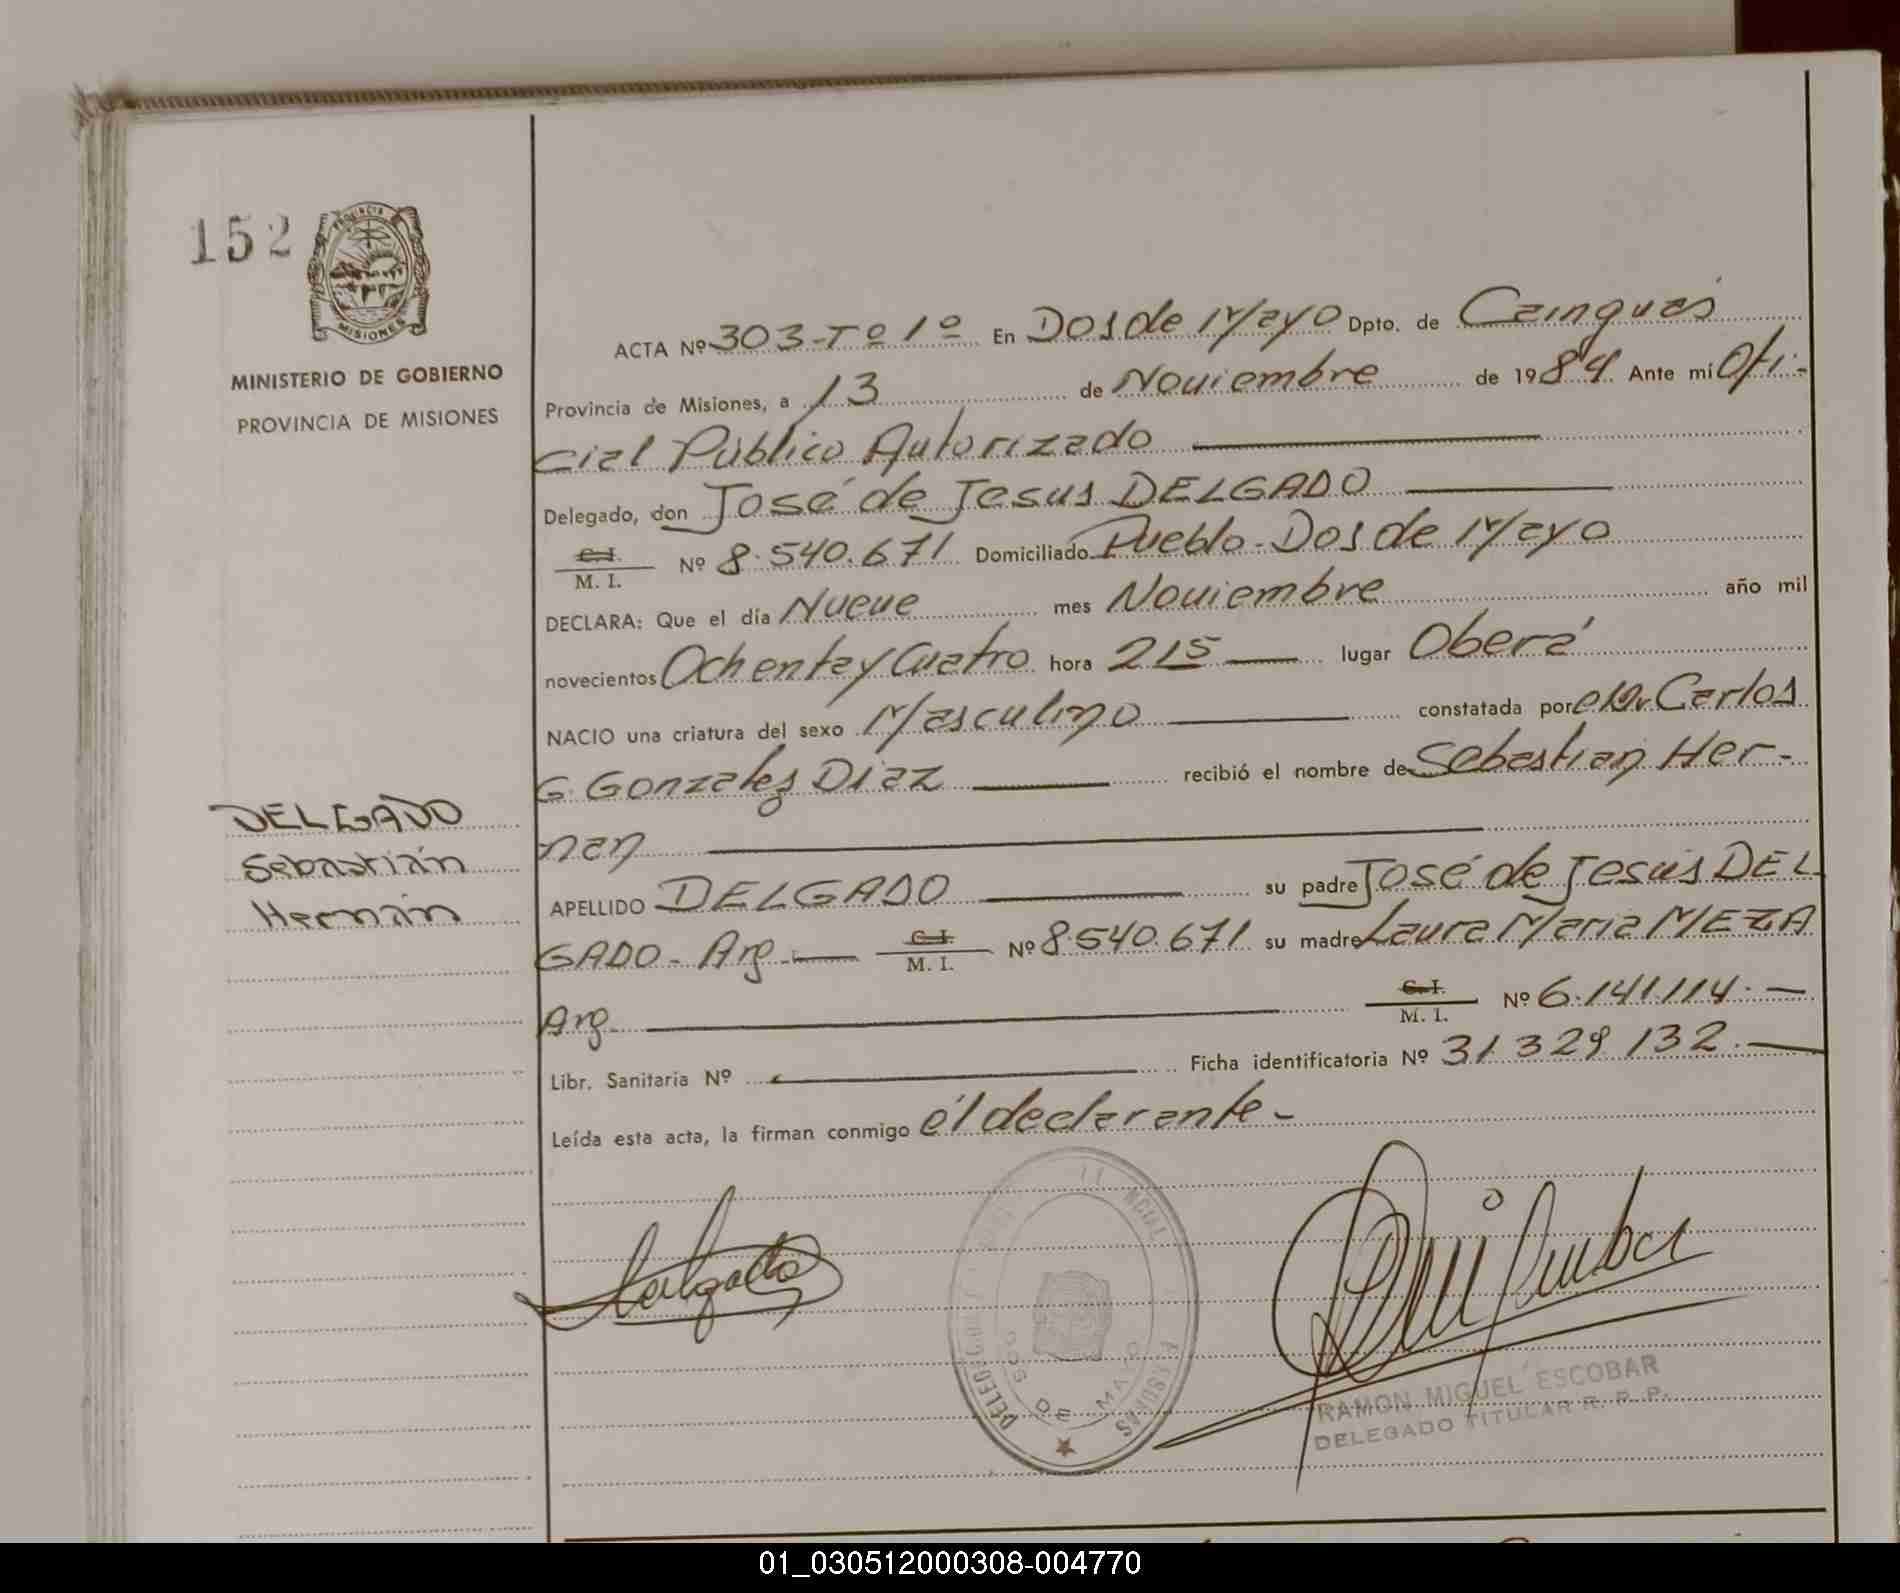 152
PROVINCIA
MISIONES
MINISTERIO DE GOBIERNO
PROVINCIA DE MISIONES
ACTA Nº 303-Tº 1º En Dos de Mayo Dpto. de Cainguás
Provincia de Misiones, a 13 de Noviembre de 1984 Ante mí Ofi-
cial Público Autorizado
Delegado, don José de Jesus DELGADO
C. I.
M. I. Nº 8.540.671 Domiciliado Pueblo-Dos de Mayo
DECLARA: Que el día Nueve mes Noviembre año mil
novecientos Ochenta y Cuatro hora 2 15 lugar Oberá
NACIO una criatura del sexo Masculino constatada por el Dr. Carlos
G. Gonzales Diaz recibió el nombre de Sebastian Her-
nan
DELGADO
Sebastián
Hernán
APELLIDO DELGADO su padre José de Jesús DEL-
GADO- Arg.- C. I.
M. I. Nº 8.540.671 su madre Laura Maria MEZA
Arg. C. I.
M. I. Nº 6.141.114.-
Libr. Sanitaria Nº Ficha identificatoria Nº 31 329 132.-
Leída esta acta, la firman conmigo él declarante-
DOS DE MAYO
RAMON MIGUEL ESCOBAR
DELEGADO TITULAR R. P. P.
01_030512000308-004770